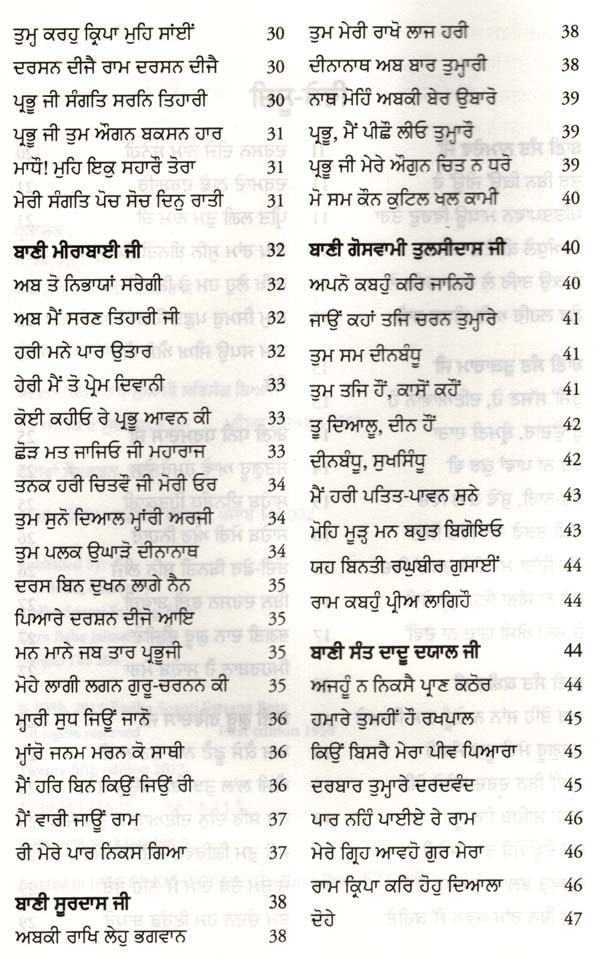 ਤੁਮ੍ਹ ਕਰਹੁ ਕ੍ਰਿਪਾ ਮੁਹਿ ਸਾਂਈਂ 30
ਦਰਸਨ ਦੀਜੈ ਰਾਮ ਦਰਸਨ ਦੀਜੈ 30
ਪ੍ਰਭੂ ਜੀ ਸੰਗਤਿ ਸਰਨਿ ਤਿਹਾਰੀ 30
ਪ੍ਰਭੂ ਜੀ ਤੁਮ ਔਗਨ ਬਕਸਨ ਹਾਰ 31
ਮਾਧੌ! ਮੁਹਿ ਇਕੁ ਸਹਾਰੌ ਤੋਰਾ 31
ਮੇਰੀ ਸੰਗਤਿ ਪੋਚ ਸੋਚ ਦਿਨੁ ਰਾਤੀ 31
ਬਾਣੀ ਮੀਰਾਬਾਈ ਜੀ 32
ਅਬ ਤੋ ਨਿਭਾਯਾਂ ਸਰੇਗੀ 32
ਅਬ ਮੈਂ ਸਰਣ ਤਿਹਾਰੀ ਜੀ 32
ਹਰੀ ਮਨੇ ਪਾਰ ਉਤਾਰ 32
ਹੇਰੀ ਮੈਂ ਤੋ ਪ੍ਰੇਮ ਦਿਵਾਨੀ 33
ਕੋਈ ਕਹੀਓ ਰੇ ਪ੍ਰਭੂ ਆਵਨ ਕੀ 33
ਛੋੜ ਮਤ ਜਾਜਿਓ ਜੀ ਮਹਾਰਾਜ 33
ਤਨਕ ਹਰੀ ਚਿਤਵੌ ਜੀ ਮੋਰੀ ਓਰ 34
ਤੁਮ ਸੁਨੋ ਦਿਆਲ ਮ੍ਹਾਂਰੀ ਅਰਜੀ 34
ਤੁਮ ਪਲਕ ਉਘਾੜੋ ਦੀਨਾਨਾਥ 34
ਦਰਸ ਬਿਨ ਦੁਖਨ ਲਾਗੇ ਨੈਨ 35
ਪਿਆਰੇ ਦਰਸ਼ਨ ਦੀਜੋ ਆਇ 35
ਮਨ ਮਾਨੇ ਜਬ ਤਾਰ ਪ੍ਰਭੂਜੀ 35
ਮੋਹੇ ਲਾਗੀ ਲਗਨ ਗੁਰੂ-ਚਰਨਨ ਕੀ 35
ਮ੍ਹਾਰੀ ਸੁਧ ਜਿਉਂ ਜਾਨੋ 36
ਮ੍ਹਾਂਰੋ ਜਨਮ ਮਰਨ ਕੋ ਸਾਥੀ 36
ਮੈਂ ਹਰਿ ਬਿਨ ਕਿਉਂ ਜਿਉਂ ਰੀ 36
ਮੈਂ ਵਾਰੀ ਜਾਊਂ ਰਾਮ 37
ਰੀ ਮੇਰੇ ਪਾਰ ਨਿਕਸ ਗਿਆ 37
ਬਾਣੀ ਸੂਰਦਾਸ ਜੀ 38
ਅਬਕੀ ਰਾਖਿ ਲੇਹੁ ਭਗਵਾਨ 38
ਤੁਮ ਮੇਰੀ ਰਾਖੋ ਲਾਜ ਹਰੀ 38
ਦੀਨਾਨਾਥ ਅਬ ਬਾਰ ਤੁਮ੍ਹਾਰੀ 38
ਨਾਥ ਮੋਹਿੰ ਅਬਕੀ ਬੇਰ ਉਬਾਰੋ 39
ਪ੍ਰਭੂ, ਮੈਂ ਪੀਛੌ ਲੀਓ ਤੁਮ੍ਹਾਰੌ 39
ਪ੍ਰਭੂ ਜੀ ਮੇਰੇ ਔਗੁਨ ਚਿਤ ਨ ਧਰੋ 39
ਮੋ ਸਮ ਕੌਨ ਕੁਟਿਲ ਖਲ ਕਾਮੀ 40
ਬਾਣੀ ਗੋਸਵਾਮੀ ਤੁਲਸੀਦਾਸ ਜੀ 40
ਅਪਨੋ ਕਬਹੁੰ ਕਰਿ ਜਾਨਿਹੌ 40
ਜਾਉਂ ਕਹਾਂ ਤਜਿ ਚਰਨ ਤੁਮ੍ਹਾਰੇ 41
ਤੁਮ ਸਮ ਦੀਨਬੰਧੂ 41
ਤੁਮ ਤਜਿ ਹੌਂ, ਕਾਸੋਂ ਕਹੌਂ 41
ਤੂ ਦਿਆਲੁ, ਦੀਨ ਹੌਂ 42
ਦੀਨਬੰਧੁ, ਸੁਖਸਿੰਧੁ 42
ਮੈਂ ਹਰੀ ਪਤਿਤ-ਪਾਵਨ ਸੁਨੇ 43
ਮੋਹਿ ਮੂੜ੍ਹ ਮਨ ਬਹੁਤ ਬਿਗੋਇਓ 43
ਯਹ ਬਿਨਤੀ ਰਘੁਬੀਰ ਗੁਸਾਈਂ 44
ਰਾਮ ਕਬਹੁੰ ਪ੍ਰੀਅ ਲਾਗਿਹੌ 44
ਬਾਣੀ ਸੰਤ ਦਾਦੂ ਦਯਾਲ ਜੀ 44
ਅਜਹੂੰ ਨ ਨਿਕਸੈ ਪ੍ਰਾਣ ਕਠੋਰ 44
ਹਮਾਰੇ ਤੁਮਹੀ ਹੌ ਰਖਪਾਲ 45
ਕਿਉਂ ਬਿਸਰੈ ਮੇਰਾ ਪੀਵ ਪਿਆਰਾ 45
ਦਰਬਾਰ ਤੁਮ੍ਹਾਰੇ ਦਰਦਵੰਦ 45
ਪਾਰ ਨਹਿੰ ਪਾਈਏ ਰੇ ਰਾਮ 46
ਮੇਰੇ ਗ੍ਰਿਹ ਆਵਹੋ ਗੁਰ ਮੇਰਾ 46
ਰਾਮ ਕ੍ਰਿਪਾ ਕਰਿ ਹੋਹੁ ਦਿਆਲਾ 46
ਦੋਹੇ 47